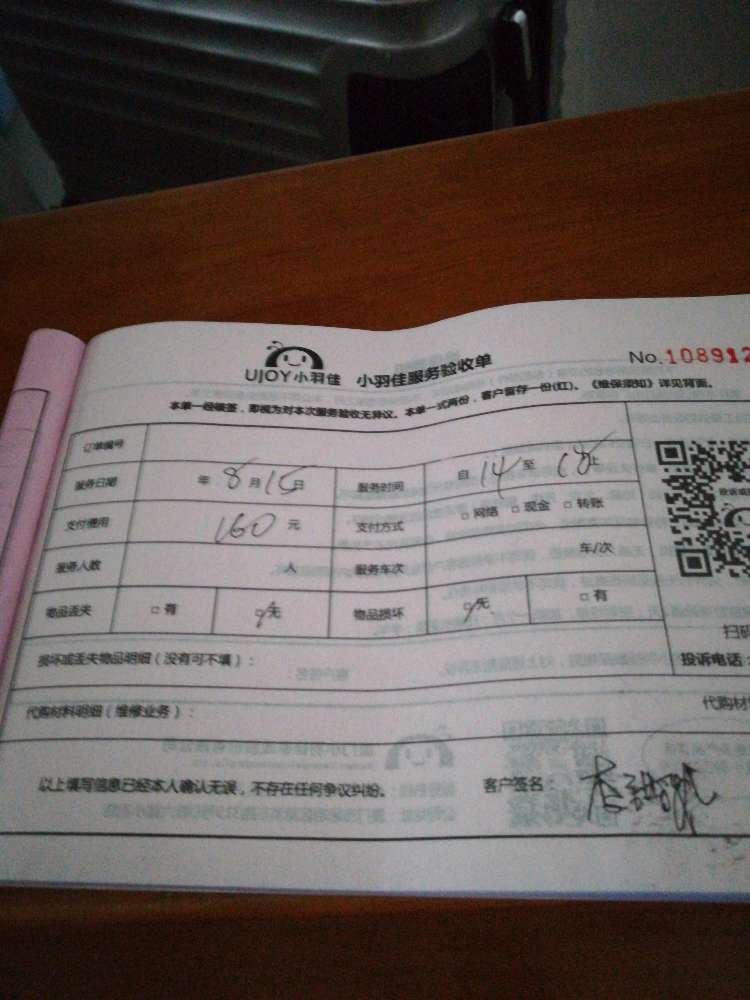 UJOY小羽佳 小羽佳服务验收单 No.108912
本单一经签签，即视为对本次服务验收无异议。本单一式两份，客户留存一份(红)。《维保须知》详见背面。
订单编号
服务日期 年 8 月 15 日 服务时间 自 14 至 18 止
支付费用 160 元 支付方式 □ 网络 □ 现金 □ 转账
服务人数 人 服务车次 车/次
物品丢失 □ 有 □ 无 物品损坏 □ 无 □ 有
扫码
损坏或丢失物品明细（没有可不填）： 投诉电话：
代购材料明细（维修业务）： 代购材
以上填写信息已经本人确认无误，不存在任何争议纠纷。 客户签名：